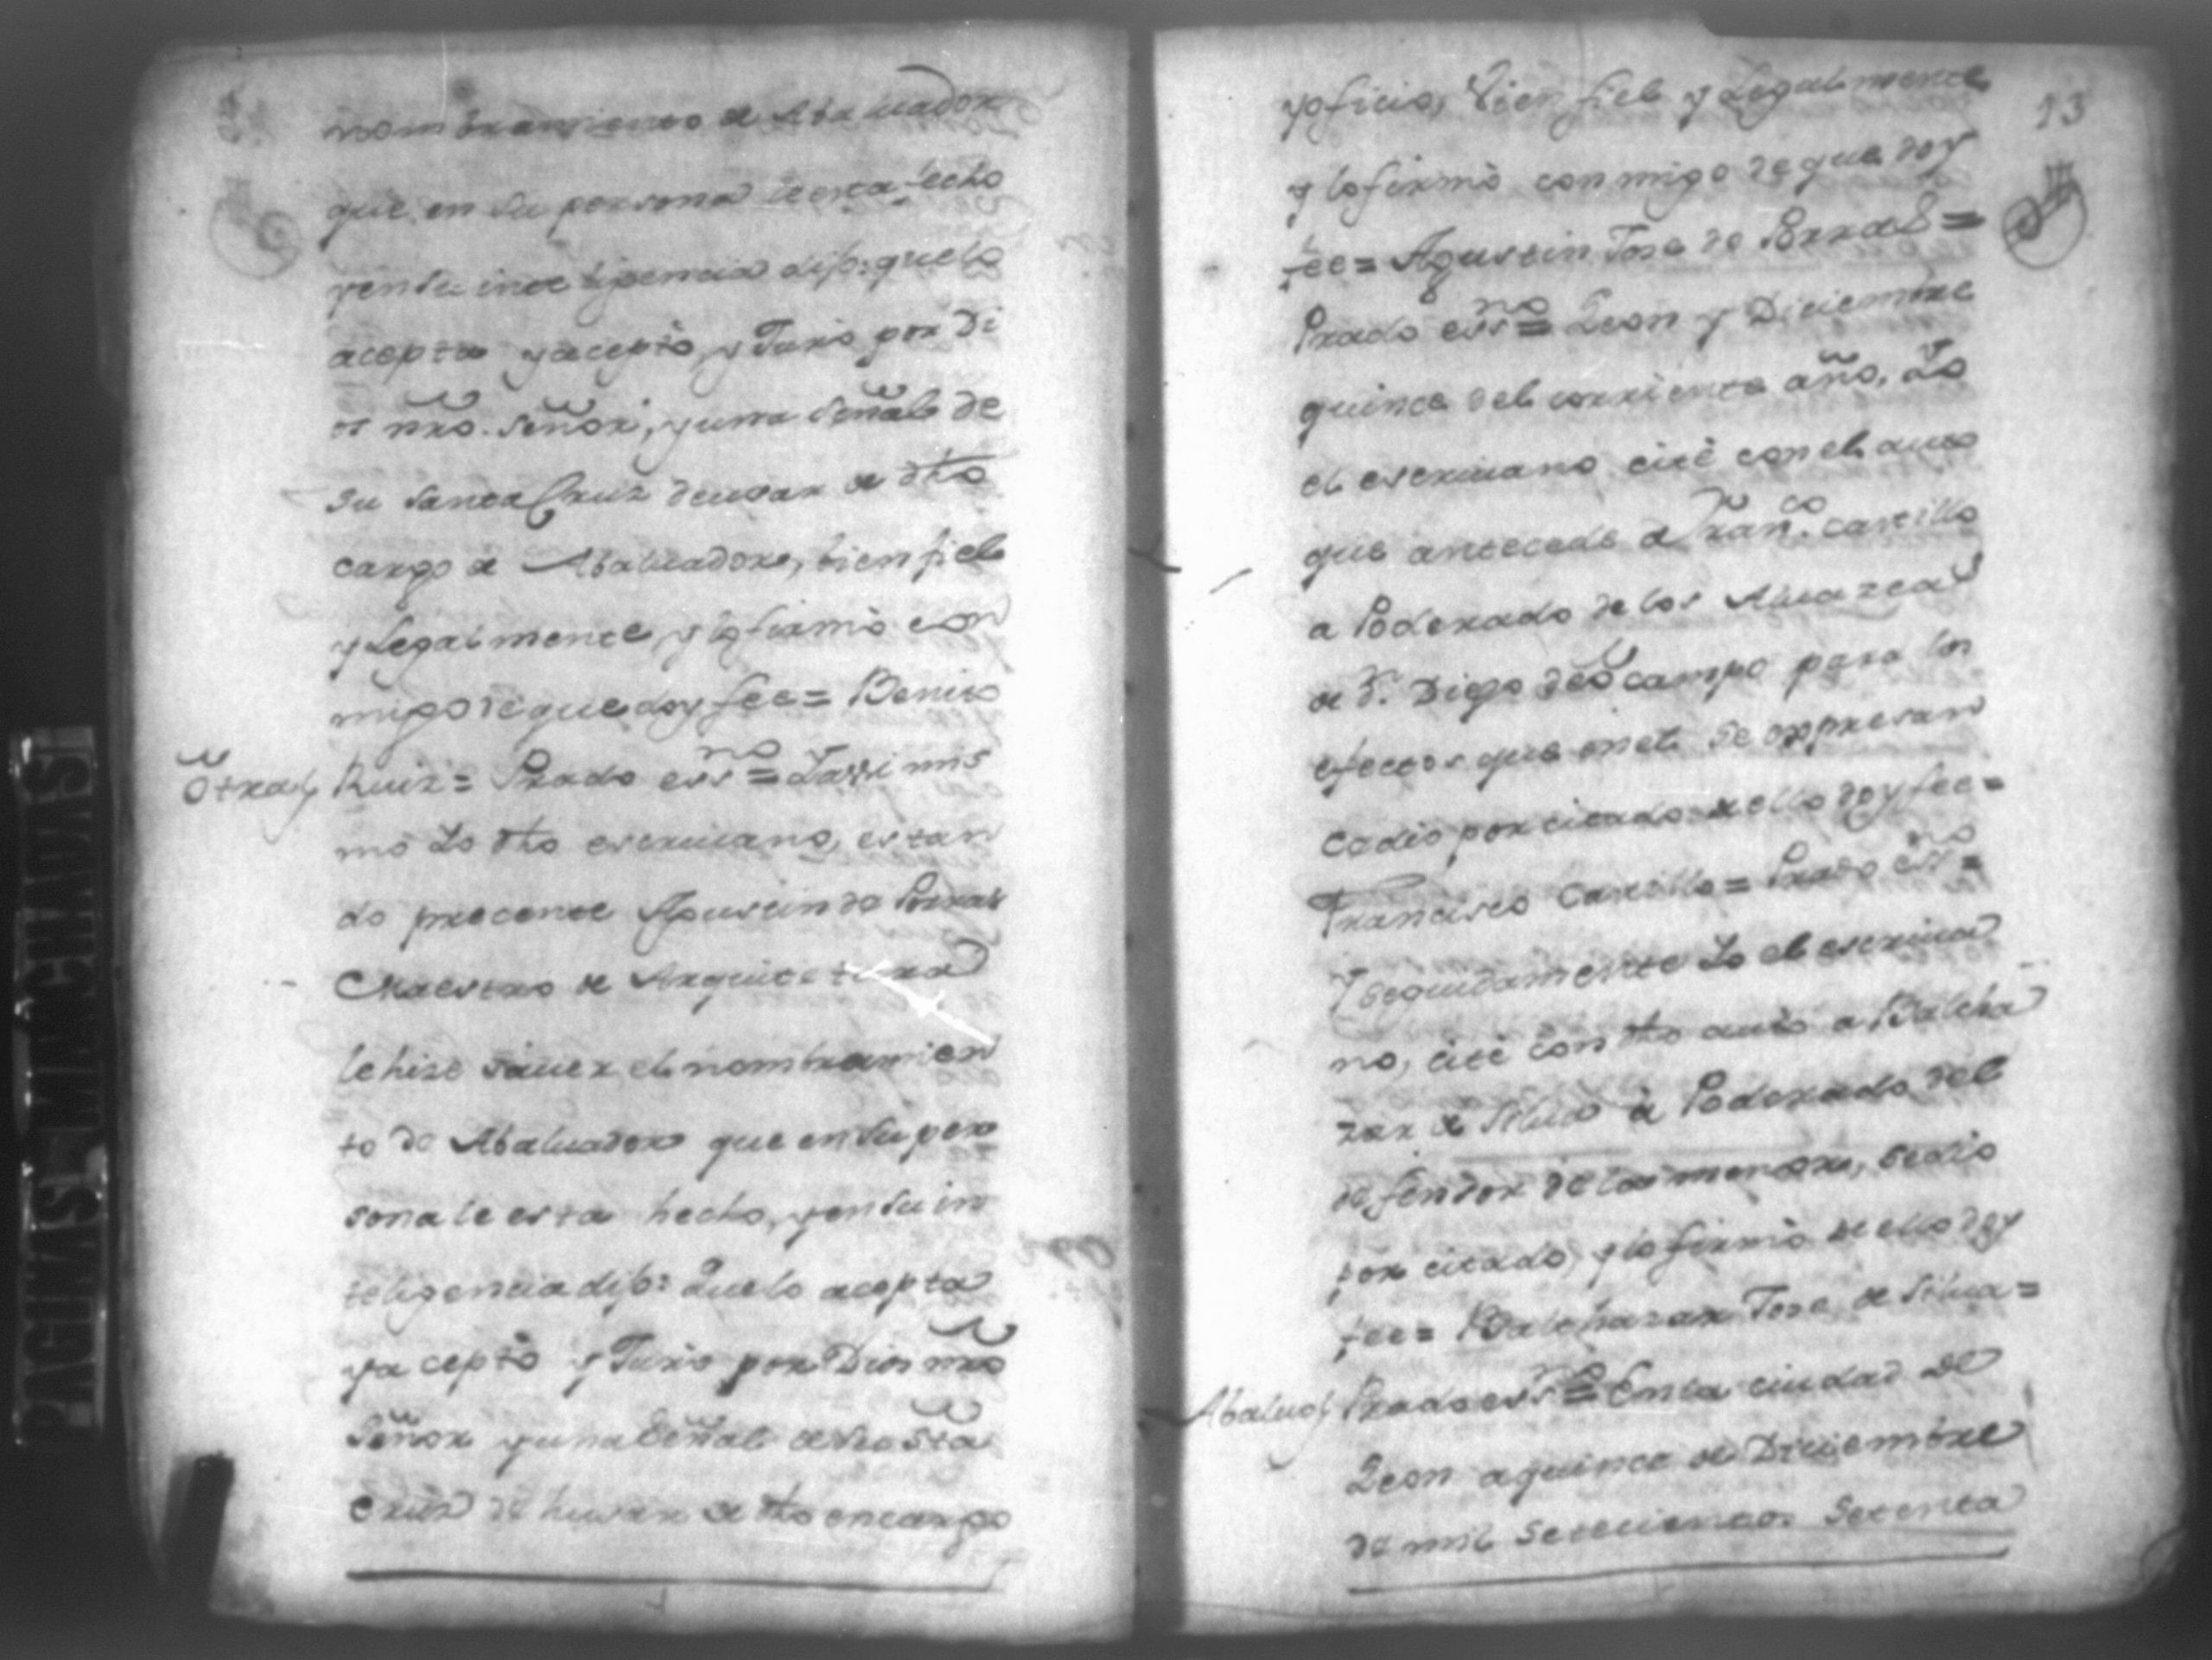 nombramiento de Abaluador
que en su persona le esta fecho
yensu inteligencia dijo: quelo
acepta yacepto, y Juro por Di
os nro. señor, yuna señal de
su santa Cruz deusar de dho
cargo de Abaluador, bien fiel
y Legalmente, y lo firmò con
migo de que doy fee = Benito
Otra Ruiz = Prado essno = Yassimis
mo Yo dho escriuano, estan
do precente Agustin de Porras
Maestro de Arquitetura
lehize sauer el nombramien
to de Abaluador que ensu per
sona le esta hecho, yensu in
teligencia dijo: Quelo acepta
yacepto y Juro por Dios nro
Señor yuna Señal desu Sta
Cruz de husar de dho encargo
PAGINAS MANCHADAS
13
yoficio, bien fiel y Legalmente
y lo firmò conmigo de que doy
fee = Agustin Jose de Porras =
Prado essno = Leon y Diciembre
quince del corriente año, Yo
el escriuano citè con el auto
que antecede a Franco. castillo
a Poderado de los
de D. Diego de ocampo para los
efectos que enel se expresan
sedio por citado de ello doy fee =
Francisco Castillo = Prado essno =
Y seguidamente Yo el escriua
no, citè con dho auto a Baltha
zar de Silua à Poderado del
defensor de los menores, sedio
por citado, y lo firmò de ello doy
fee = Balthazar Jose de Silua =
Abaluo Prado essno = Enla ciudad de
Leon a quince de Diciembre
de mil setecientos setenta